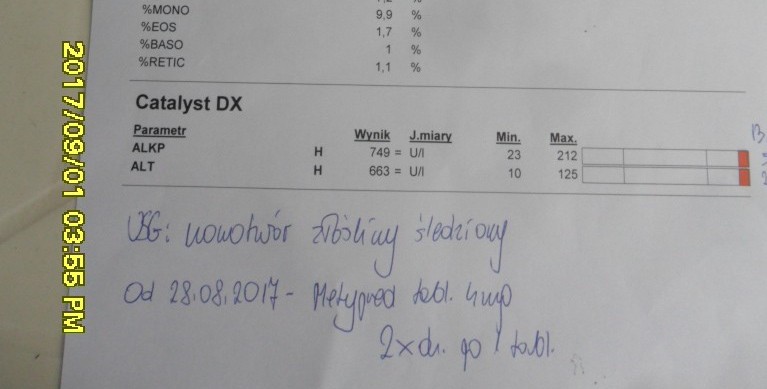 %MONO 9,9 %
%EOS 1,7 %
%BASO 1 %
%RETIC 1,1 %
Catalyst DX
Parametr Wynik J.miary Min. Max.
ALKP H 749 = U/l 23 212
ALT H 663 = U/l 10 125
USG: nowotwór złośliwy śledziony
Od 28.08.2017 - Metypred tabl. 4mg
2x dz. po 1 tabl.
2017/09/01 03:55 PM